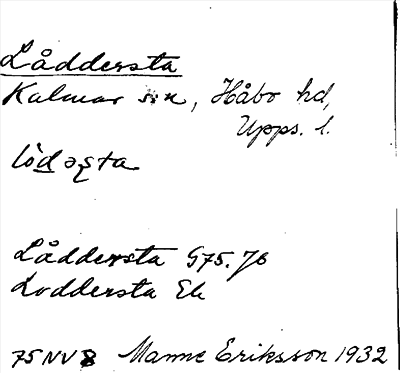 Låddersta
Kalmar sn, Håbo hd,
Upps. l.
Låddersta G75. Jb
Loddersta Ek
75NV8 Manne Eriksson 1932